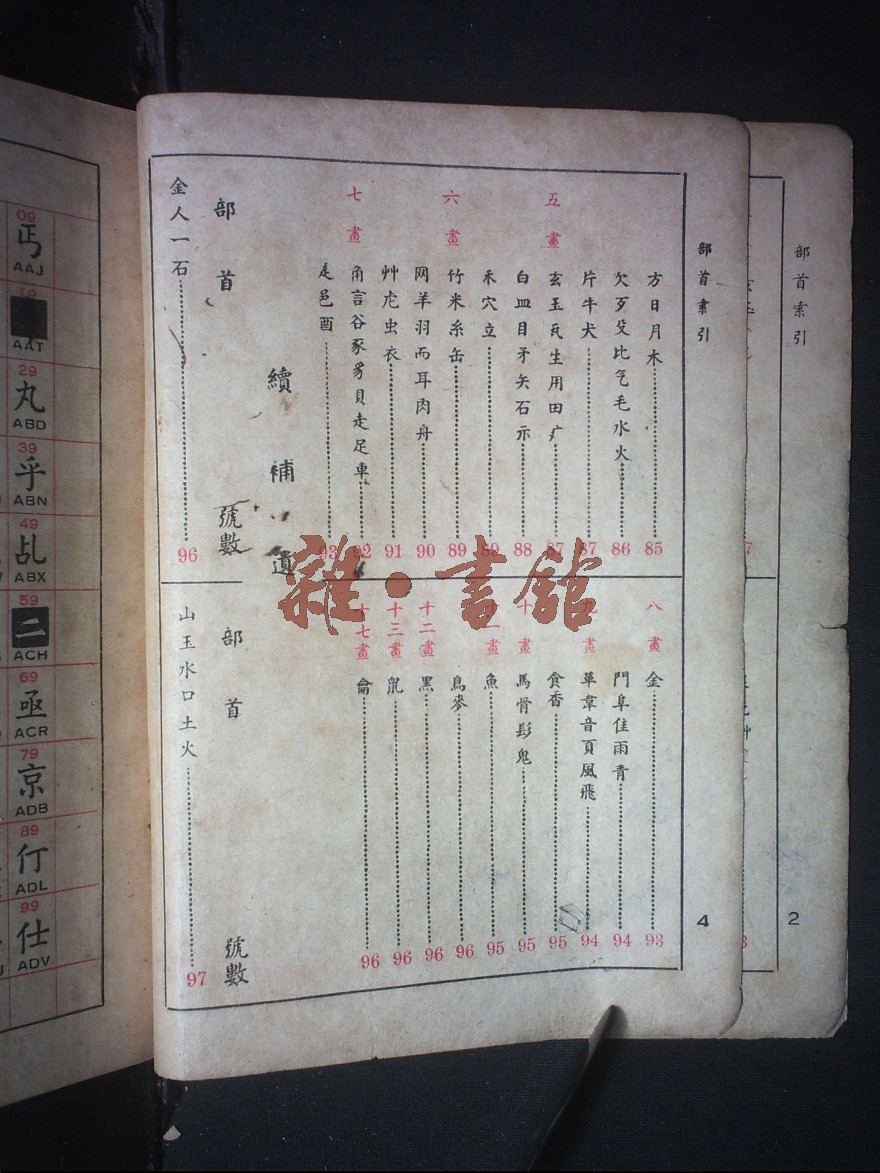 部首索引
4
方日月木 85
欠歹殳比气毛水火 86
片牛犬 87
五畫 玄玉瓦生用田疒 87
白皿目矛矢石示 88
禾穴立 89
六畫 竹米糸缶 89
网羊羽而耳肉舟 90
艸虍虫衣 91
七畫 角言谷豕豸貝走足車 92
辵邑酉 93
續補遺
部首 號數
金人一石 96
八畫 金 93
門阜隹雨青 94
畫 革韋音頁風飛 94
食香 95
十畫 馬骨髟鬼 95
十一畫 魚 95
鳥麥 96
十二畫 黑 96
十三畫 鼠 96
十七畫 龠 96
部首 號數
山玉水口土火 97
部首索引
2
雜·書館
09
丐
AAJ
19
AAT
29
丸
ABD
39
乎
ABN
49
乩
ABX
59
二
ACH
69
亟
ACR
79
京
ADB
89
仃
ADL
99
仕
ADV